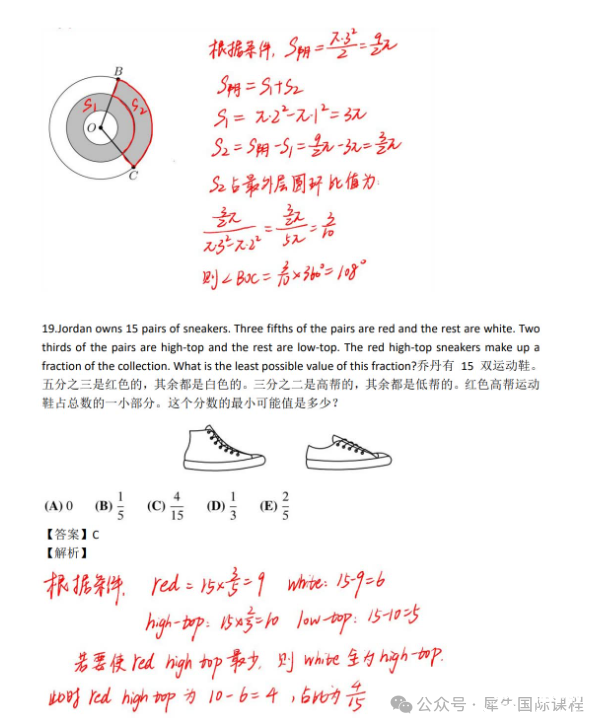 根据条件, S阴 = π·3²/2 = 9/2π
S阴 = S₁+S₂
S₁ = π·2²-π·1² = 3π
S₂ = S阴-S₁ = 9/2π-3π = 3/2π
S₂占最外层圆环比值为:
3/2π / π·3²-π·2² = 3/2π / 5π = 3/10
则∠BOC = 3/10×360° = 108°
B
S₁ S₂
O
C
19.Jordan owns 15 pairs of sneakers. Three fifths of the pairs are red and the rest are white. Two
thirds of the pairs are high-top and the rest are low-top. The red high-top sneakers make up a
fraction of the collection. What is the least possible value of this fraction?乔丹有 15 双运动鞋。
五分之三是红色的，其余都是白色的。三分之二是高帮的，其余都是低帮的。红色高帮运动
鞋占总数的一小部分。这个分数的最小可能值是多少？
(A) 0 (B) 1/5 (C) 4/15 (D) 1/3 (E) 2/5
【答案】C
【解析】
根据条件, red = 15×3/5 = 9 white: 15-9=6
high-top: 15×2/3=10 low-top: 15-10=5
若要使red high top最少, 则 white 全为high-top.
此时 red high top 为 10-6=4 , 占比为 4/15
公众号·犀牛国际课程